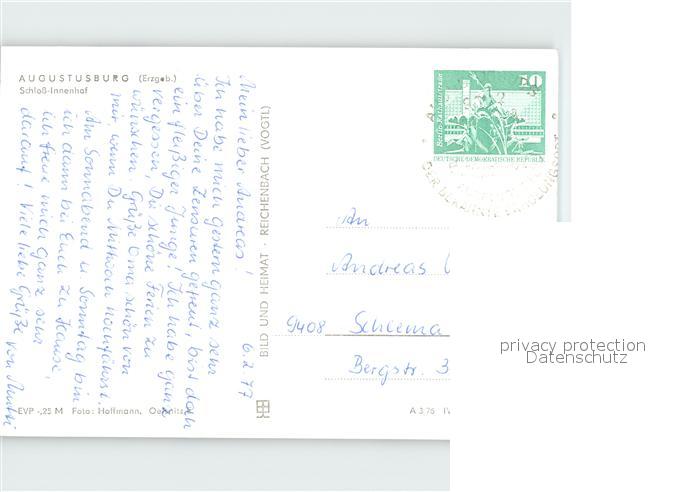 AUGUSTUSBURG (Erzgeb.)
Schloß-Innenhof
6.2.77
Mein lieber Andreas!
Ich habe mich gestern ganz sehr
über Deine Zensuren gefreut, bist doch
ein fleißiger Junge! Ich habe ganz
vergessen, Dir schöne Ferien zu
wünschen. Grüße Oma schön von
mir, wenn Du Mittwoch hochfährst.
Am Sonnabend u. Sonntag bin
ich dann bei Euch zu Hause,
ich freue mich ganz sehr
darauf! Viele liebe Grüße von Mutti
EVP -,25 M Foto: Hoffmann,
BILD UND HEIMAT · REICHENBACH (VOGTL)
A 3/76 IV
50
Berlin, Rathausstraße
DEUTSCHE DEMOKRATISCHE REPUBLIK
An
Andreas
9408 Schlema
Bergstr. 3
privacy protection
Datenschutz